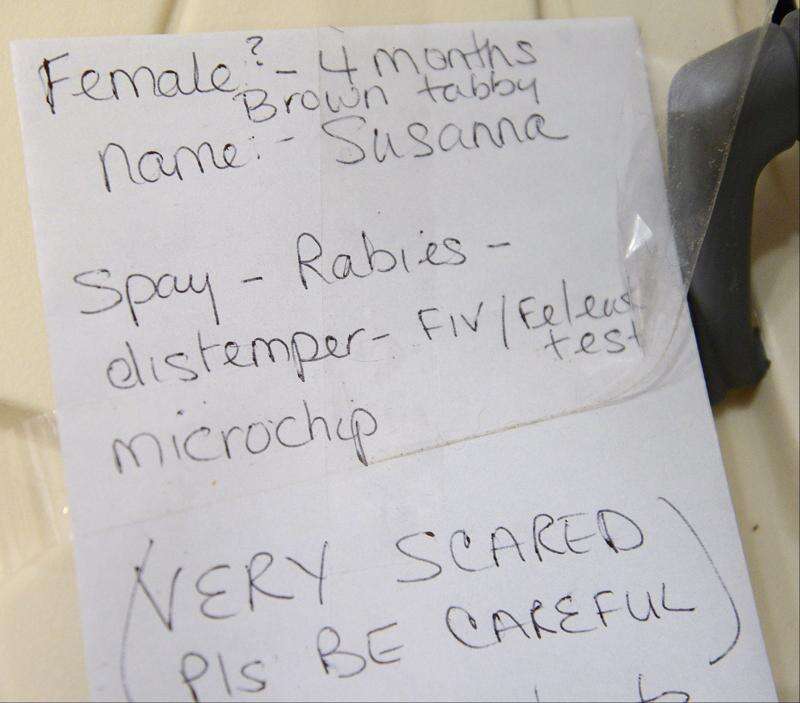 Female? - 4 months
Brown tabby
name:- Susanna
Spay - Rabies -
distemper - FIV/Feleuk
test
microchip
(VERY SCARED
Pls BE CAREFUL)